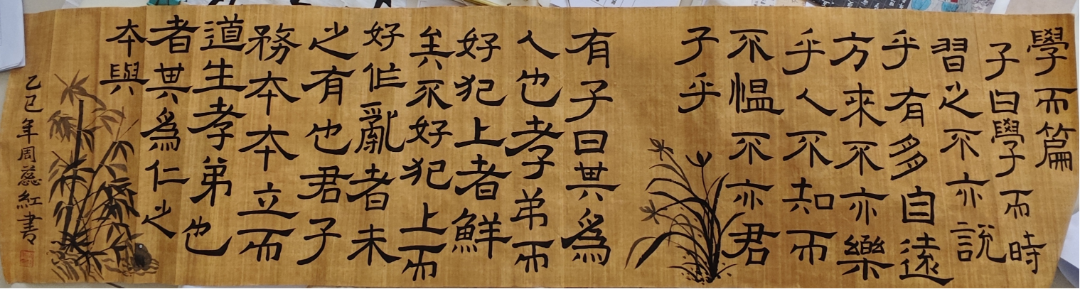 學而篇
子曰學而時
習之不亦說
乎有多自遠
方來不亦樂
乎人不知而
不愠不亦君
子乎
有子曰其為
人也孝弟而
好犯上者鮮
矣不好犯上而
好作亂者未
之有也君子
務本本立而
道生孝弟也
者其為仁之
本與
乙巳年周蕊紅書